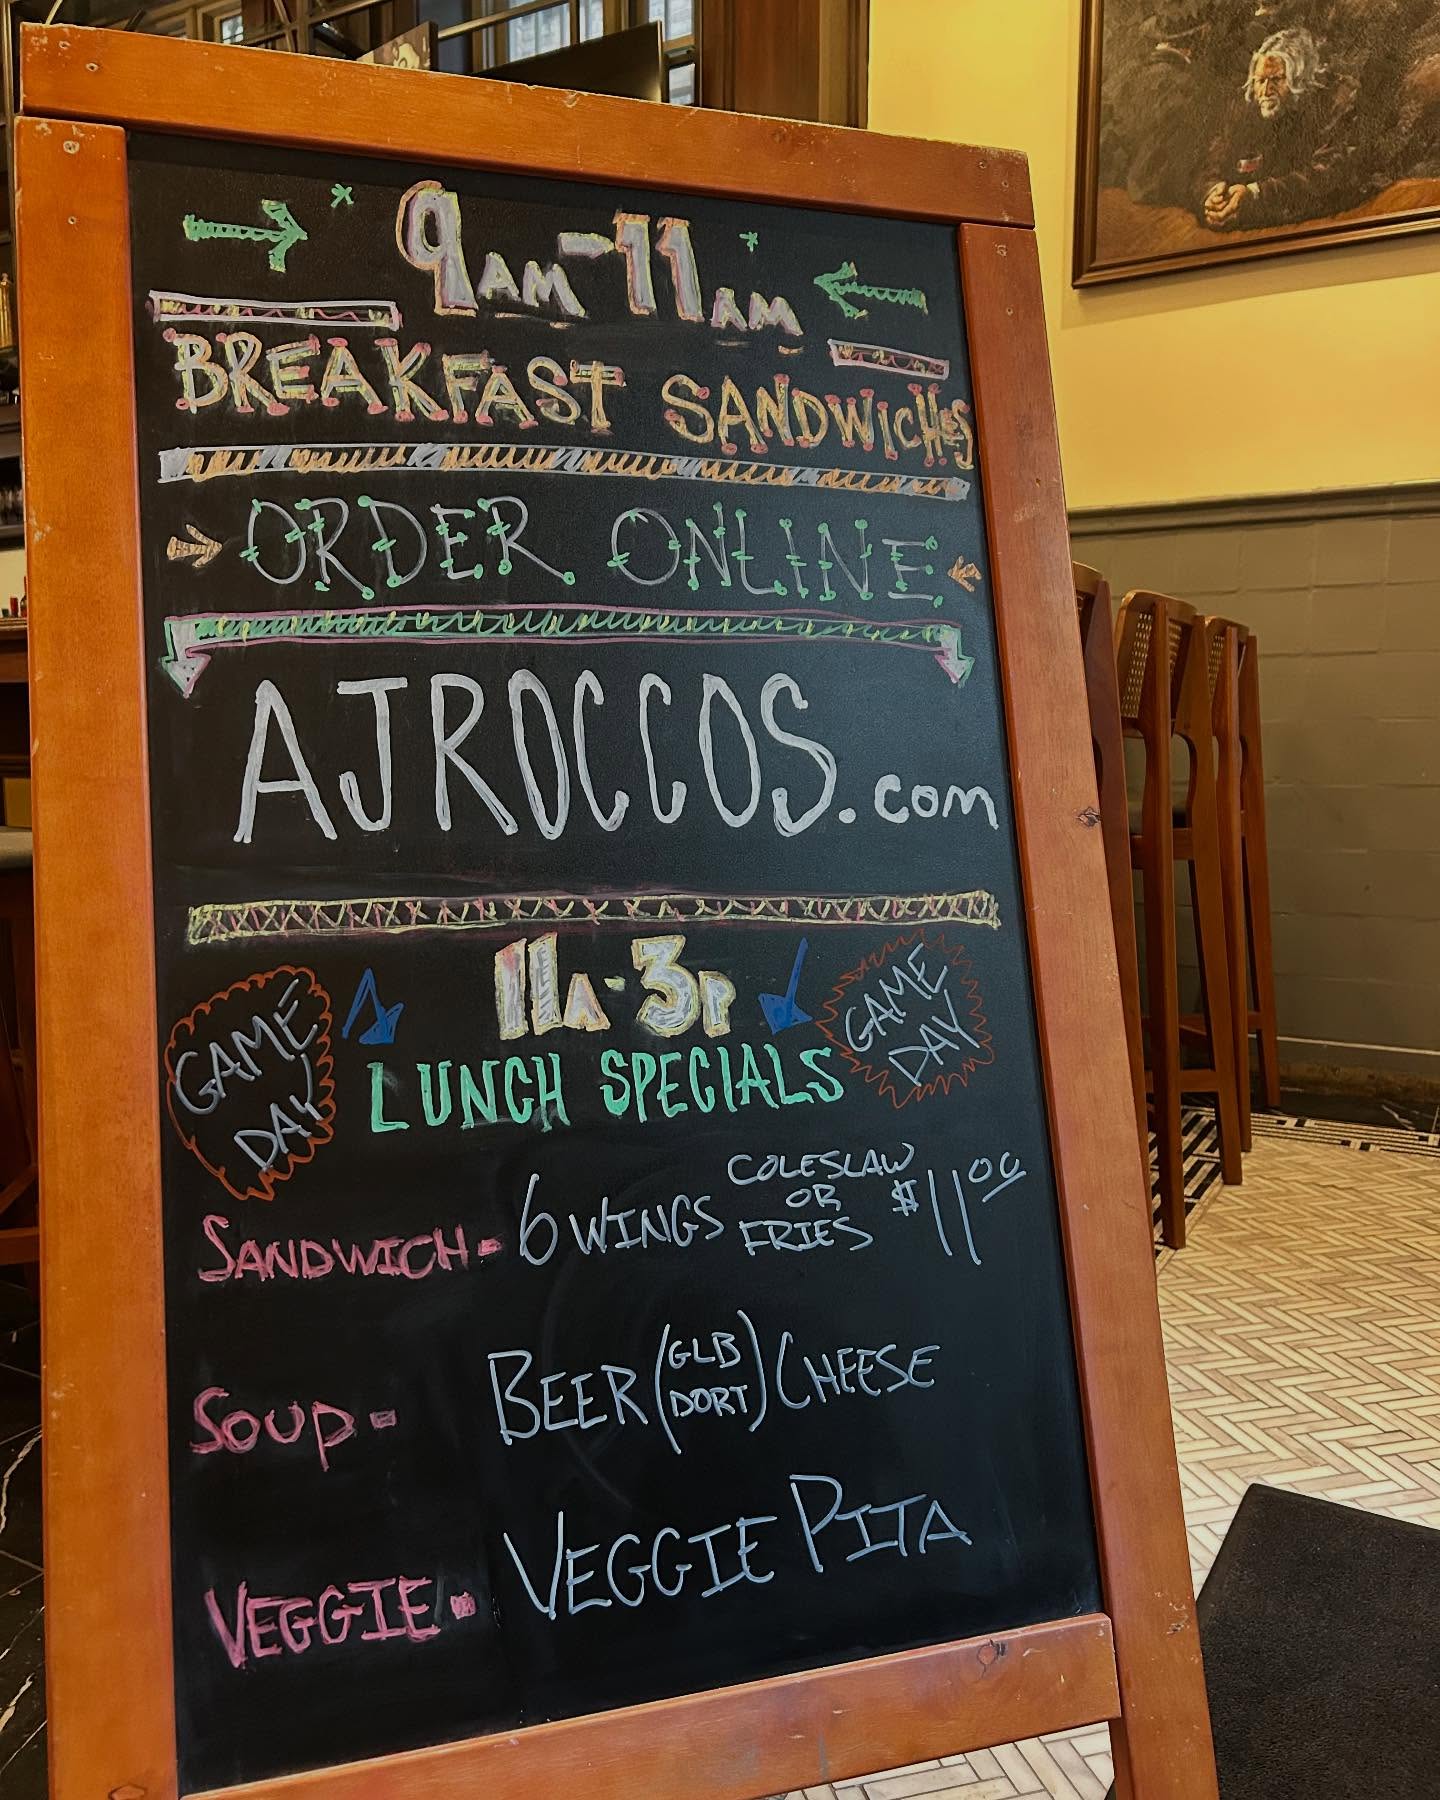 9AM-11AM
BREAKFAST SANDWICHES
ORDER ONLINE
AJROCCOS.com
11A-3P
GAME DAY
GAME DAY
LUNCH SPECIALS
SANDWICH- 6 WINGS COLESLAW OR FRIES $11.00
SOUP- BEER (GLB DORT) CHEESE
VEGGIE- VEGGIE PITA